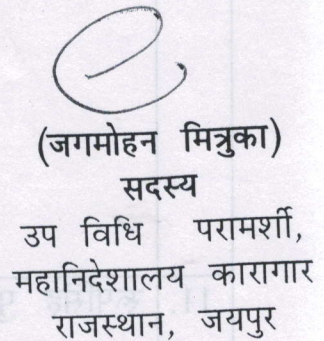 (जगमोहन मित्रुका)
सदस्य
उप विधि परामर्शी,
महानिदेशालय कारागार
राजस्थान, जयपुर